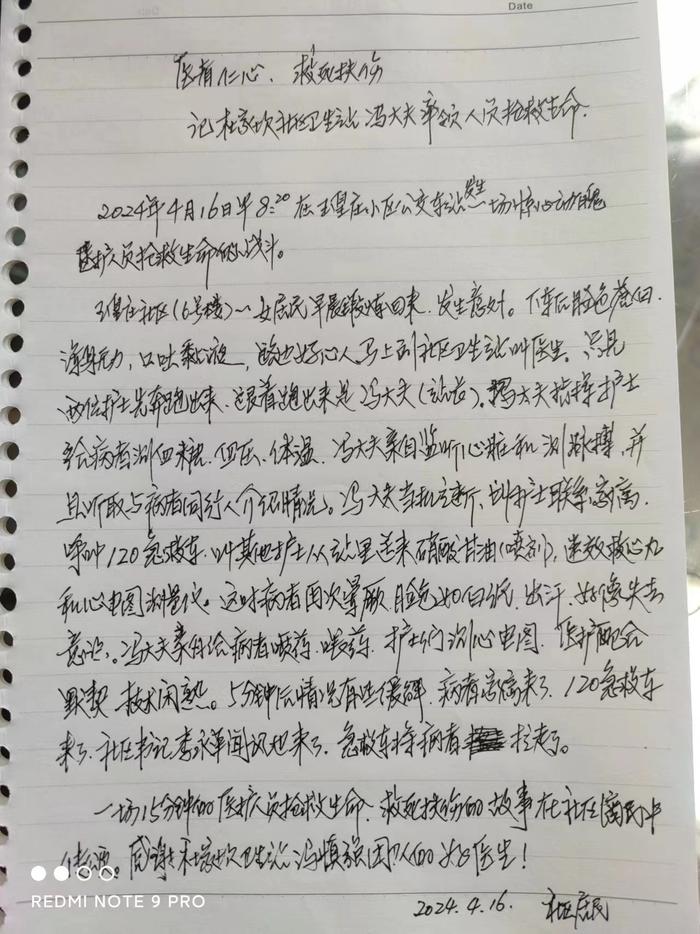 Date
医者仁心、救死扶伤
记杜家坎社区卫生站冯大夫率领人员抢救生命.
2024年4月16日早8:20在王望庄小区公交车站发生一场惊心动魄
医护人员抢救生命的战斗。
王望庄社区(6号楼)一女居民早晨锻炼回来.发生意外。下车后脸色苍白.
浑身无力,口吐黏液,路边好心人马上到社区卫生站叫医生。只见
两位护士先奔跑出来.跟着跑出来是冯大夫(站长)。冯大夫指挥护士
给病者测血糖.血压、体温.冯大夫亲自监听心脏和测脉搏.并
且听取与病者同行人介绍情况。冯大夫当机立断、叫护士联系家属.
呼叫120急救车.叫其他护士从站里送来硝酸甘油(喷剂),速效救心丸
和心电图测量仪。这时病者再次晕厥.脸色如白纸.出汗.好像失去
意识。冯大夫亲自给病者喷药.喂药.护士们测心电图.医护配合
默契.技术闲熟。5分钟后情况有些缓解.病者家属来了.120急救车
来了.社区书记李永革闻讯也来了.急救车将病者拉走了。
一场15分钟的医护人员抢救生命.救死扶伤的故事在社区居民中
传颂。感谢杜家坎卫生站冯慎强团队的好医生!
2024.4.16. 社区居民
REDMI NOTE 9 PRO